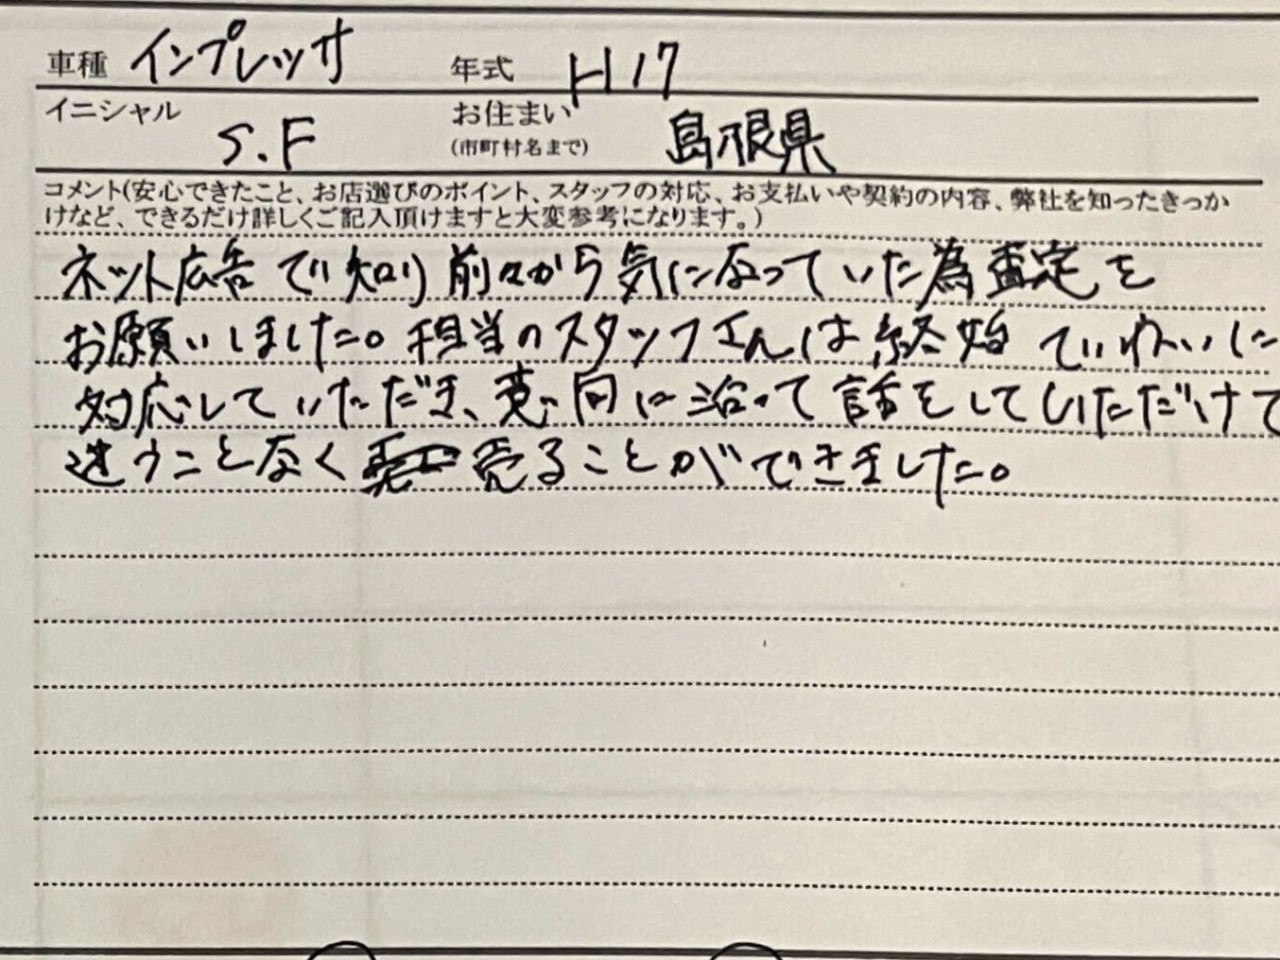 車種 インプレッサ 年式 H17
イニシャル S.F お住まい(市町村名まで) 島根県
コメント(安心できたこと、お店選びのポイント、スタッフの対応、お支払いや契約の内容、弊社を知ったきっか
けなど、できるだけ詳しくご記入頂けますと大変参考になります。)
ネット広告で知り前々から気になっていた為査定を
お願いしました。担当のスタッフさんは終始ていねいに
対応していただき、意向に沿って話をしていただけて
迷うことなく売ることができました。